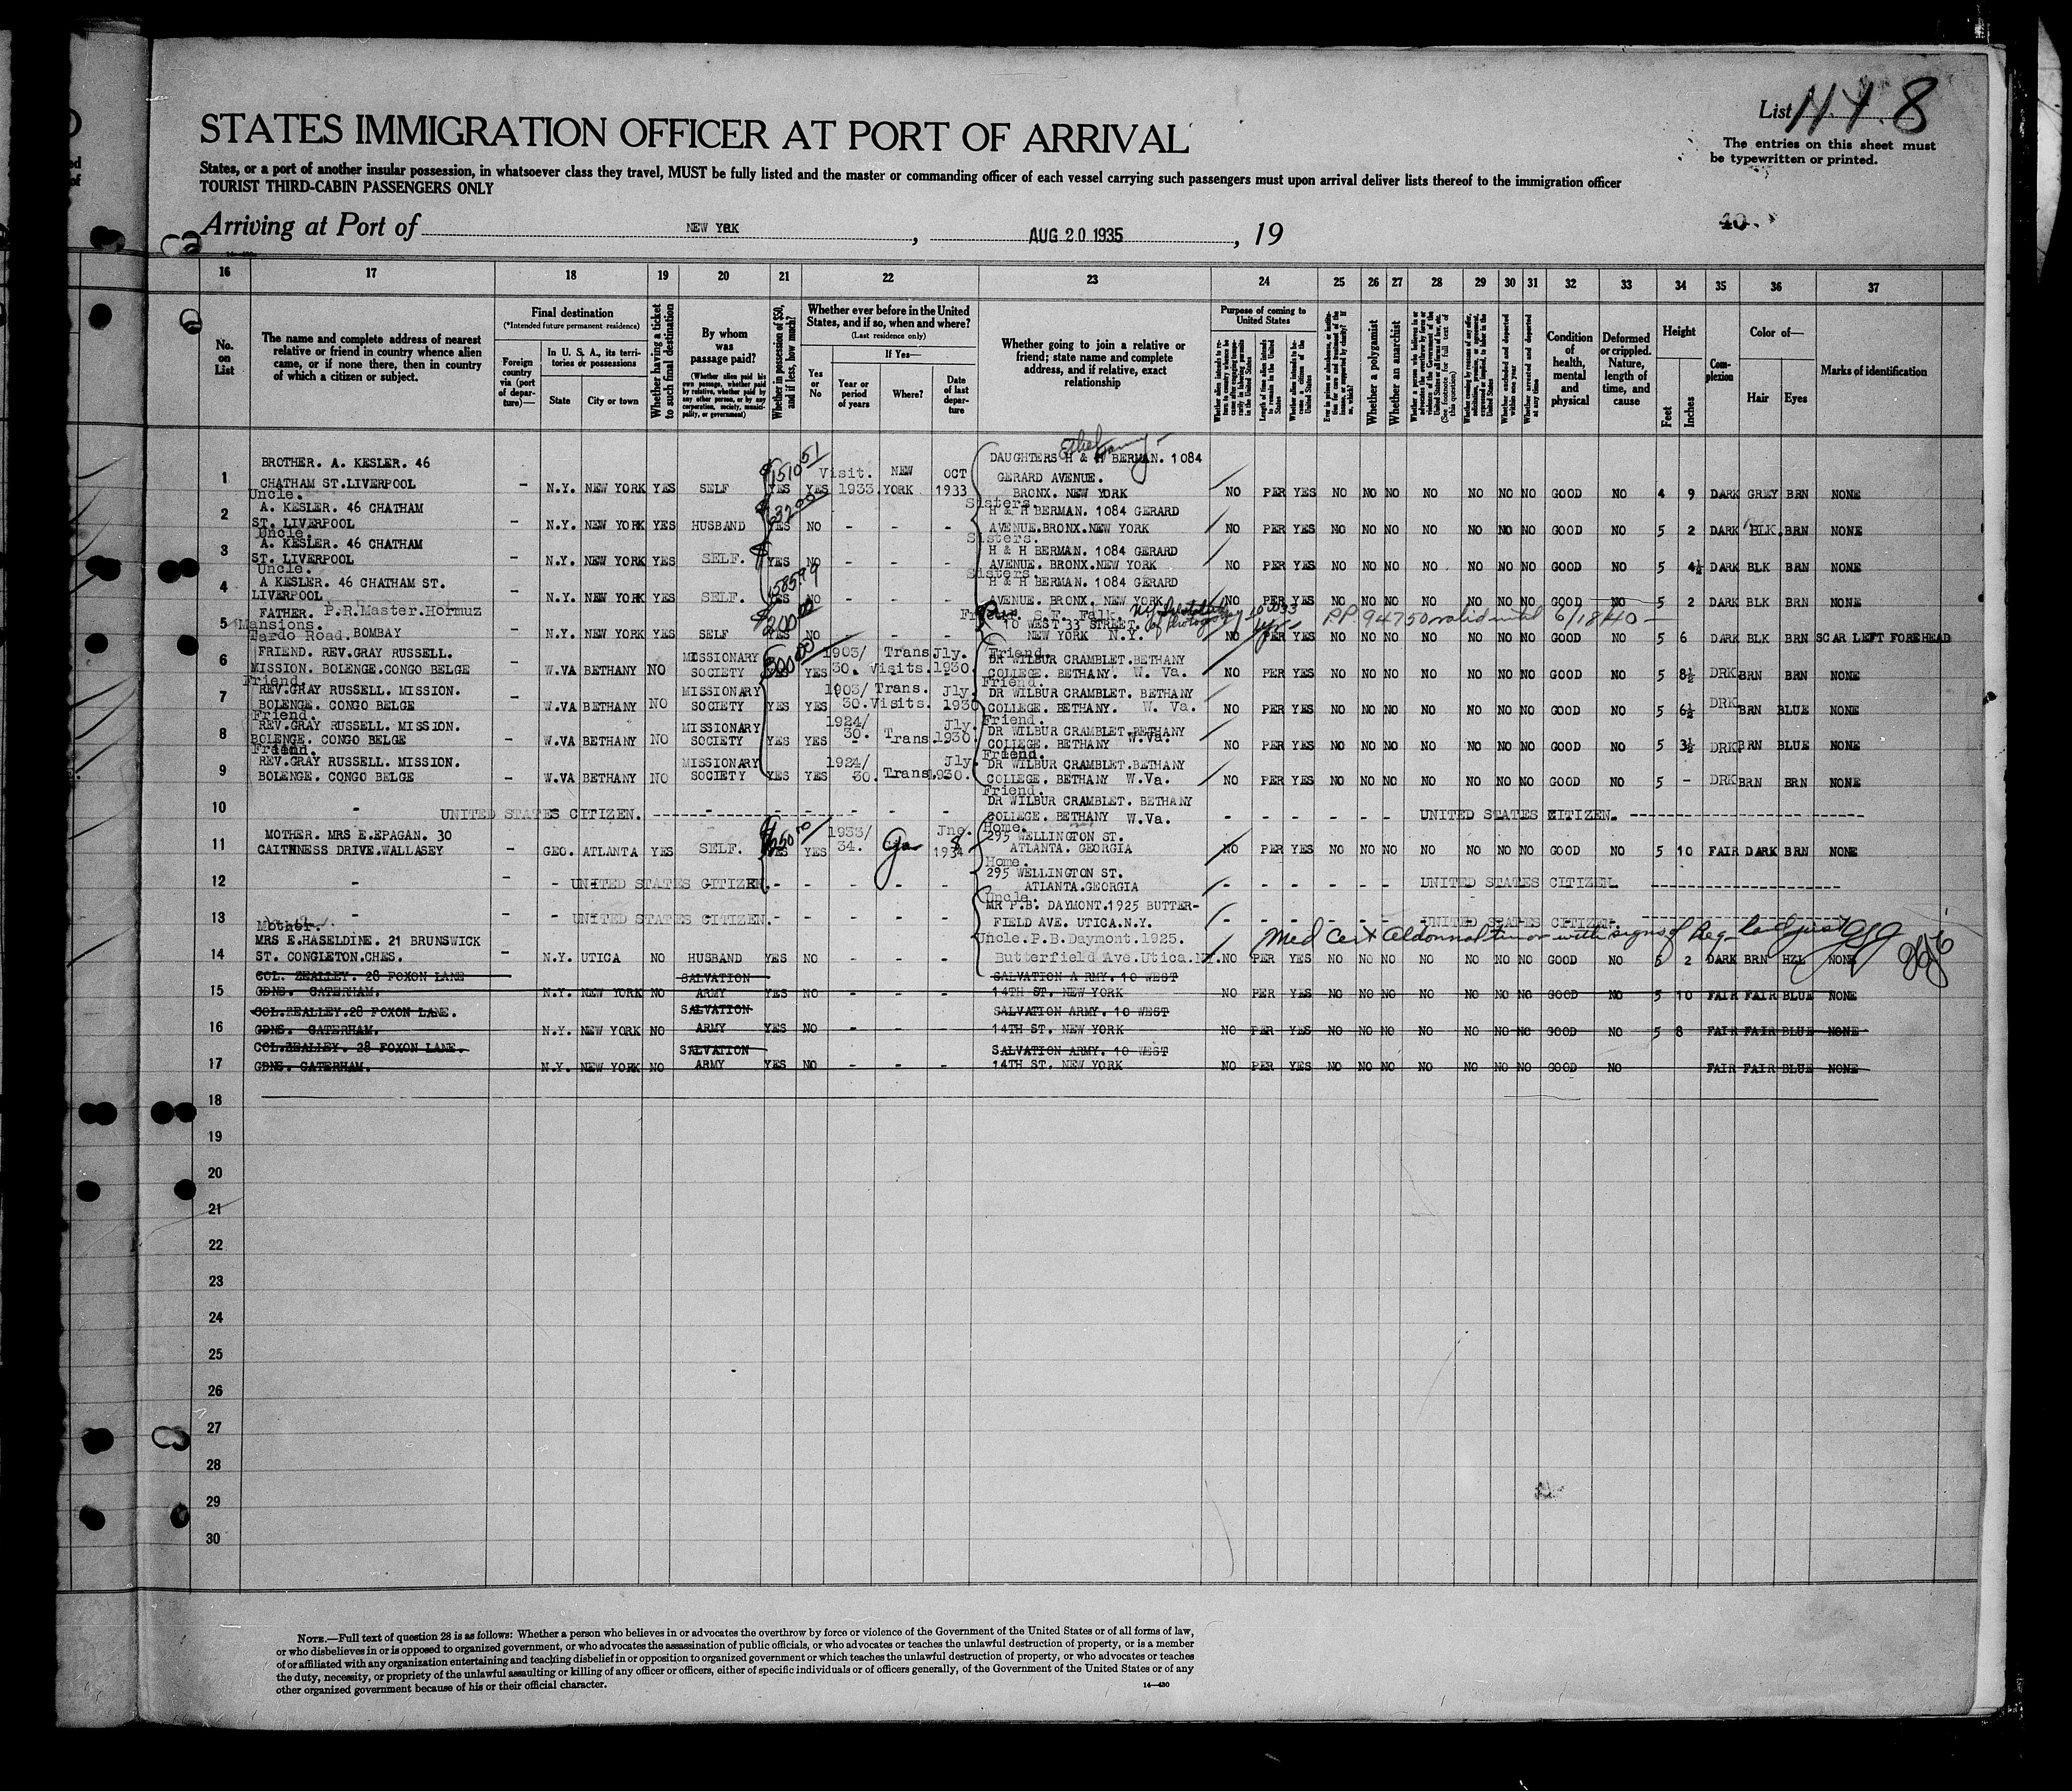 List 8
The entries on this sheet must
be typewritten or printed.
STATES IMMIGRATION OFFICER AT PORT OF ARRIVAL
States, or a port of another insular possession, in whatsoever class they travel, MUST be fully listed and the master or commanding officer of each vessel carrying such passengers must upon arrival deliver lists thereof to the immigration officer
TOURIST THIRD-CABIN PASSENGERS ONLY
Arriving at Port of NEW YORK, AUG 20 1935, 19
40.
16 17 18 19 20 21 22 23 24 25 26 27 28 29 30 31 32 33 34 35 36 37
No. on List
The name and complete address of nearest
relative or friend in country whence alien
came, or if none there, then in country
of which a citizen or subject.
Final destination
(*Intended future permanent residence)
Foreign country via (port of departure)—
In U. S. A., its territories or possessions
State
City or town
Whether having a ticket to such final destination
By whom was passage paid?
(Whether alien paid his own passage, whether paid by relative, whether paid by any other person, or by any corporation, society, municipality, or government)
Whether in possession of $50, and if less, how much?
Whether ever before in the United States, and if so, when and where?
(Last residence only)
Yes or No
If Yes—
Year or period of years
Where?
Date of last departure
Whether going to join a relative or
friend; state name and complete
address, and if relative, exact
relationship
Purpose of coming to United States
Whether a polygamist
Whether an anarchist
Condition of health, mental and physical
Deformed or crippled. Nature, length of time, and cause
Height
Feet
Inches
Complexion
Color of—
Hair
Eyes
Marks of identification
1 BROTHER. A. KESLER. 46
CHATHAM ST.LIVERPOOL
- N.Y. NEW YORK YES SELF YES YES Visit. 1933. NEW YORK OCT 1933
DAUGHTERS H & H BERMAN. 1084
GERARD AVENUE.
BRONX. NEW YORK
NO PER YES NO NO NO NO NO NO NO GOOD NO 4 9 DARK GREY BRN NONE
2 Uncle.
A. KESLER. 46 CHATHAM
ST. LIVERPOOL
- N.Y. NEW YORK YES HUSBAND YES NO - - -
Sisters.
H & H BERMAN. 1084 GERARD
AVENUE.BRONX.NEW YORK
NO PER YES NO NO NO NO NO NO NO GOOD NO 5 2 DARK BLK BRN NONE
3 Uncle.
A. KESLER. 46 CHATHAM
ST. LIVERPOOL
- N.Y. NEW YORK YES SELF. YES NO - - -
Sisters.
H & H BERMAN. 1084 GERARD
AVENUE. BRONX.NEW YORK
NO PER YES NO NO NO NO NO NO NO GOOD NO 5 4½ DARK BLK BRN NONE
4 Uncle.
A KESLER. 46 CHATHAM ST.
LIVERPOOL
- N.Y. NEW YORK YES SELF. YES NO - - -
Sisters
H & H BERMAN. 1084 GERARD
AVENUE. BRONX. NEW YORK
NO PER YES NO NO NO NO NO NO NO GOOD NO 5 2 DARK BLK BRN NONE
5 FATHER. P.R.Master.Hormuz
Mansions.
Tardo Road. BOMBAY
- N.Y. NEW YORK YES SELF 200.00 YES NO - - -
Friend. S.F. Falk.
10 WEST 33 STREET.
NEW YORK N.Y.
NY Institute of Photography 10 W 33
1 yr
P.P. 94750 valid until 6/18/40 —
NO PER YES NO NO NO NO NO NO NO GOOD NO 5 6 DARK BLK BRN SCAR LEFT FOREHEAD
6 FRIEND. REV.GRAY RUSSELL.
MISSION. BOLENGE.CONGO BELGE
- W.VA BETHANY NO MISSIONARY SOCIETY YES YES 1903/30. Trans. visits. Jly. 1930.
Friend.
DR WILBUR CRAMBLET.BETHANY
COLLEGE. BETHANY. W. Va.
NO PER YES NO NO NO NO NO NO NO GOOD NO 5 8½ DRK BRN BRN NONE
7 Friend.
REV.GRAY RUSSELL. MISSION.
BOLENGE. CONGO BELGE
- W.VA BETHANY NO MISSIONARY SOCIETY YES YES 1903/30. Trans. Visits. Jly. 1930
Friend.
DR WILBUR CRAMBLET. BETHANY
COLLEGE. BETHANY. W. Va.
NO PER YES NO NO NO NO NO NO NO GOOD NO 5 6½ DRK BRN BLUE NONE
8 Friend.
REV.GRAY RUSSELL. MISSION.
BOLENGE. CONGO BELGE
- W.VA BETHANY NO MISSIONARY SOCIETY YES YES 1924/30. Trans. Jly. 1930.
Friend.
DR WILBUR CRAMBLET.BETHANY
COLLEGE. BETHANY W.Va.
NO PER YES NO NO NO NO NO NO NO GOOD NO 5 3½ DRK BRN BLUE NONE
9 Friend.
REV.GRAY RUSSELL. MISSION.
BOLENGE. CONGO BELGE
- W.VA BETHANY NO MISSIONARY SOCIETY YES YES 1924/30. Trans. Jly. 1930.
Friend.
DR WILBUR CRAMBLET.BETHANY
COLLEGE. BETHANY W.Va.
NO PER YES NO NO NO NO NO NO NO GOOD NO 5 - DRK BRN BRN NONE
10 - UNITED STATES CITIZEN.
Friend.
DR WILBUR CRAMBLET. BETHANY
COLLEGE. BETHANY W.Va.
UNITED STATES CITIZEN.
11 MOTHER. MRS E.EPAGAN. 30
CAITHNESS DRIVE.WALLASEY
- GEO. ATLANTA YES SELF. YES YES 1933/34. Ga Jne. 8 1934
Home.
295 WELLINGTON ST.
ATLANTA. GEORGIA
NO PER YES NO NO NO NO NO NO NO GOOD NO 5 10 FAIR DARK BRN NONE
12 - UNITED STATES CITIZEN.
Home.
295 WELLINGTON ST.
ATLANTA.GEORGIA
UNITED STATES CITIZEN.
13 - UNITED STATES CITIZEN.
Uncle.
MR P.B. DAYMONT.1925 BUTTER-
FIELD AVE. UTICA.N.Y.
UNITED STATES CITIZEN.
14 Mother.
MRS E.HASELDINE. 21 BRUNSWICK
ST. CONGLETON.CHES.
N.Y. UTICA NO HUSBAND YES NO - - -
Uncle.P.B.Daymont.1925.
Butterfield Ave.Utica.NY.
Med Cert
NO PER YES NO NO NO NO NO NO NO GOOD NO 5 2 DARK BRN HZL NONE
15 COL. ZEALLEY. 28 FOXON LANE
GDNS. CATERHAM.
N.Y. NEW YORK NO SALVATION ARMY YES NO - - -
SALVATION ARMY. 10 WEST
14TH ST. NEW YORK
NO PER YES NO NO NO NO NO NO NO GOOD NO 5 10 FAIR FAIR BLUE NONE
16 COL.ZEALLEY.28 FOXON LANE.
GDNS. CATERHAM.
N.Y. NEW YORK NO SALVATION ARMY YES NO - - -
SALVATION ARMY. 10 WEST
14TH ST. NEW YORK
NO PER YES NO NO NO NO NO NO NO GOOD NO 5 8 FAIR FAIR BLUE NONE
17 COL.ZEALLEY. 28 FOXON LANE.
GDNS. CATERHAM.
N.Y. NEW YORK NO SALVATION ARMY YES NO - - -
SALVATION ARMY. 10 WEST
14TH ST. NEW YORK
NO PER YES NO NO NO NO NO NO NO GOOD NO FAIR FAIR BLUE NONE
18
19
20
21
22
23
24
25
26
27
28
29
30
NOTE.—Full text of question 28 is as follows: Whether a person who believes in or advocates the overthrow by force or violence of the Government of the United States or of all forms of law,
or who disbelieves in or is opposed to organized government, or who advocates the assassination of public officials, or who advocates or teaches the unlawful destruction of property, or is a member
of or affiliated with any organization entertaining and teaching disbelief in or opposition to organized government or which teaches the unlawful destruction of property, or who advocates or teaches
the duty, necessity, or propriety of the unlawful assaulting or killing of any officer or officers, either of specific individuals or of officers generally, of the Government of the United States or of any
other organized government because of his or their official character.
14—430